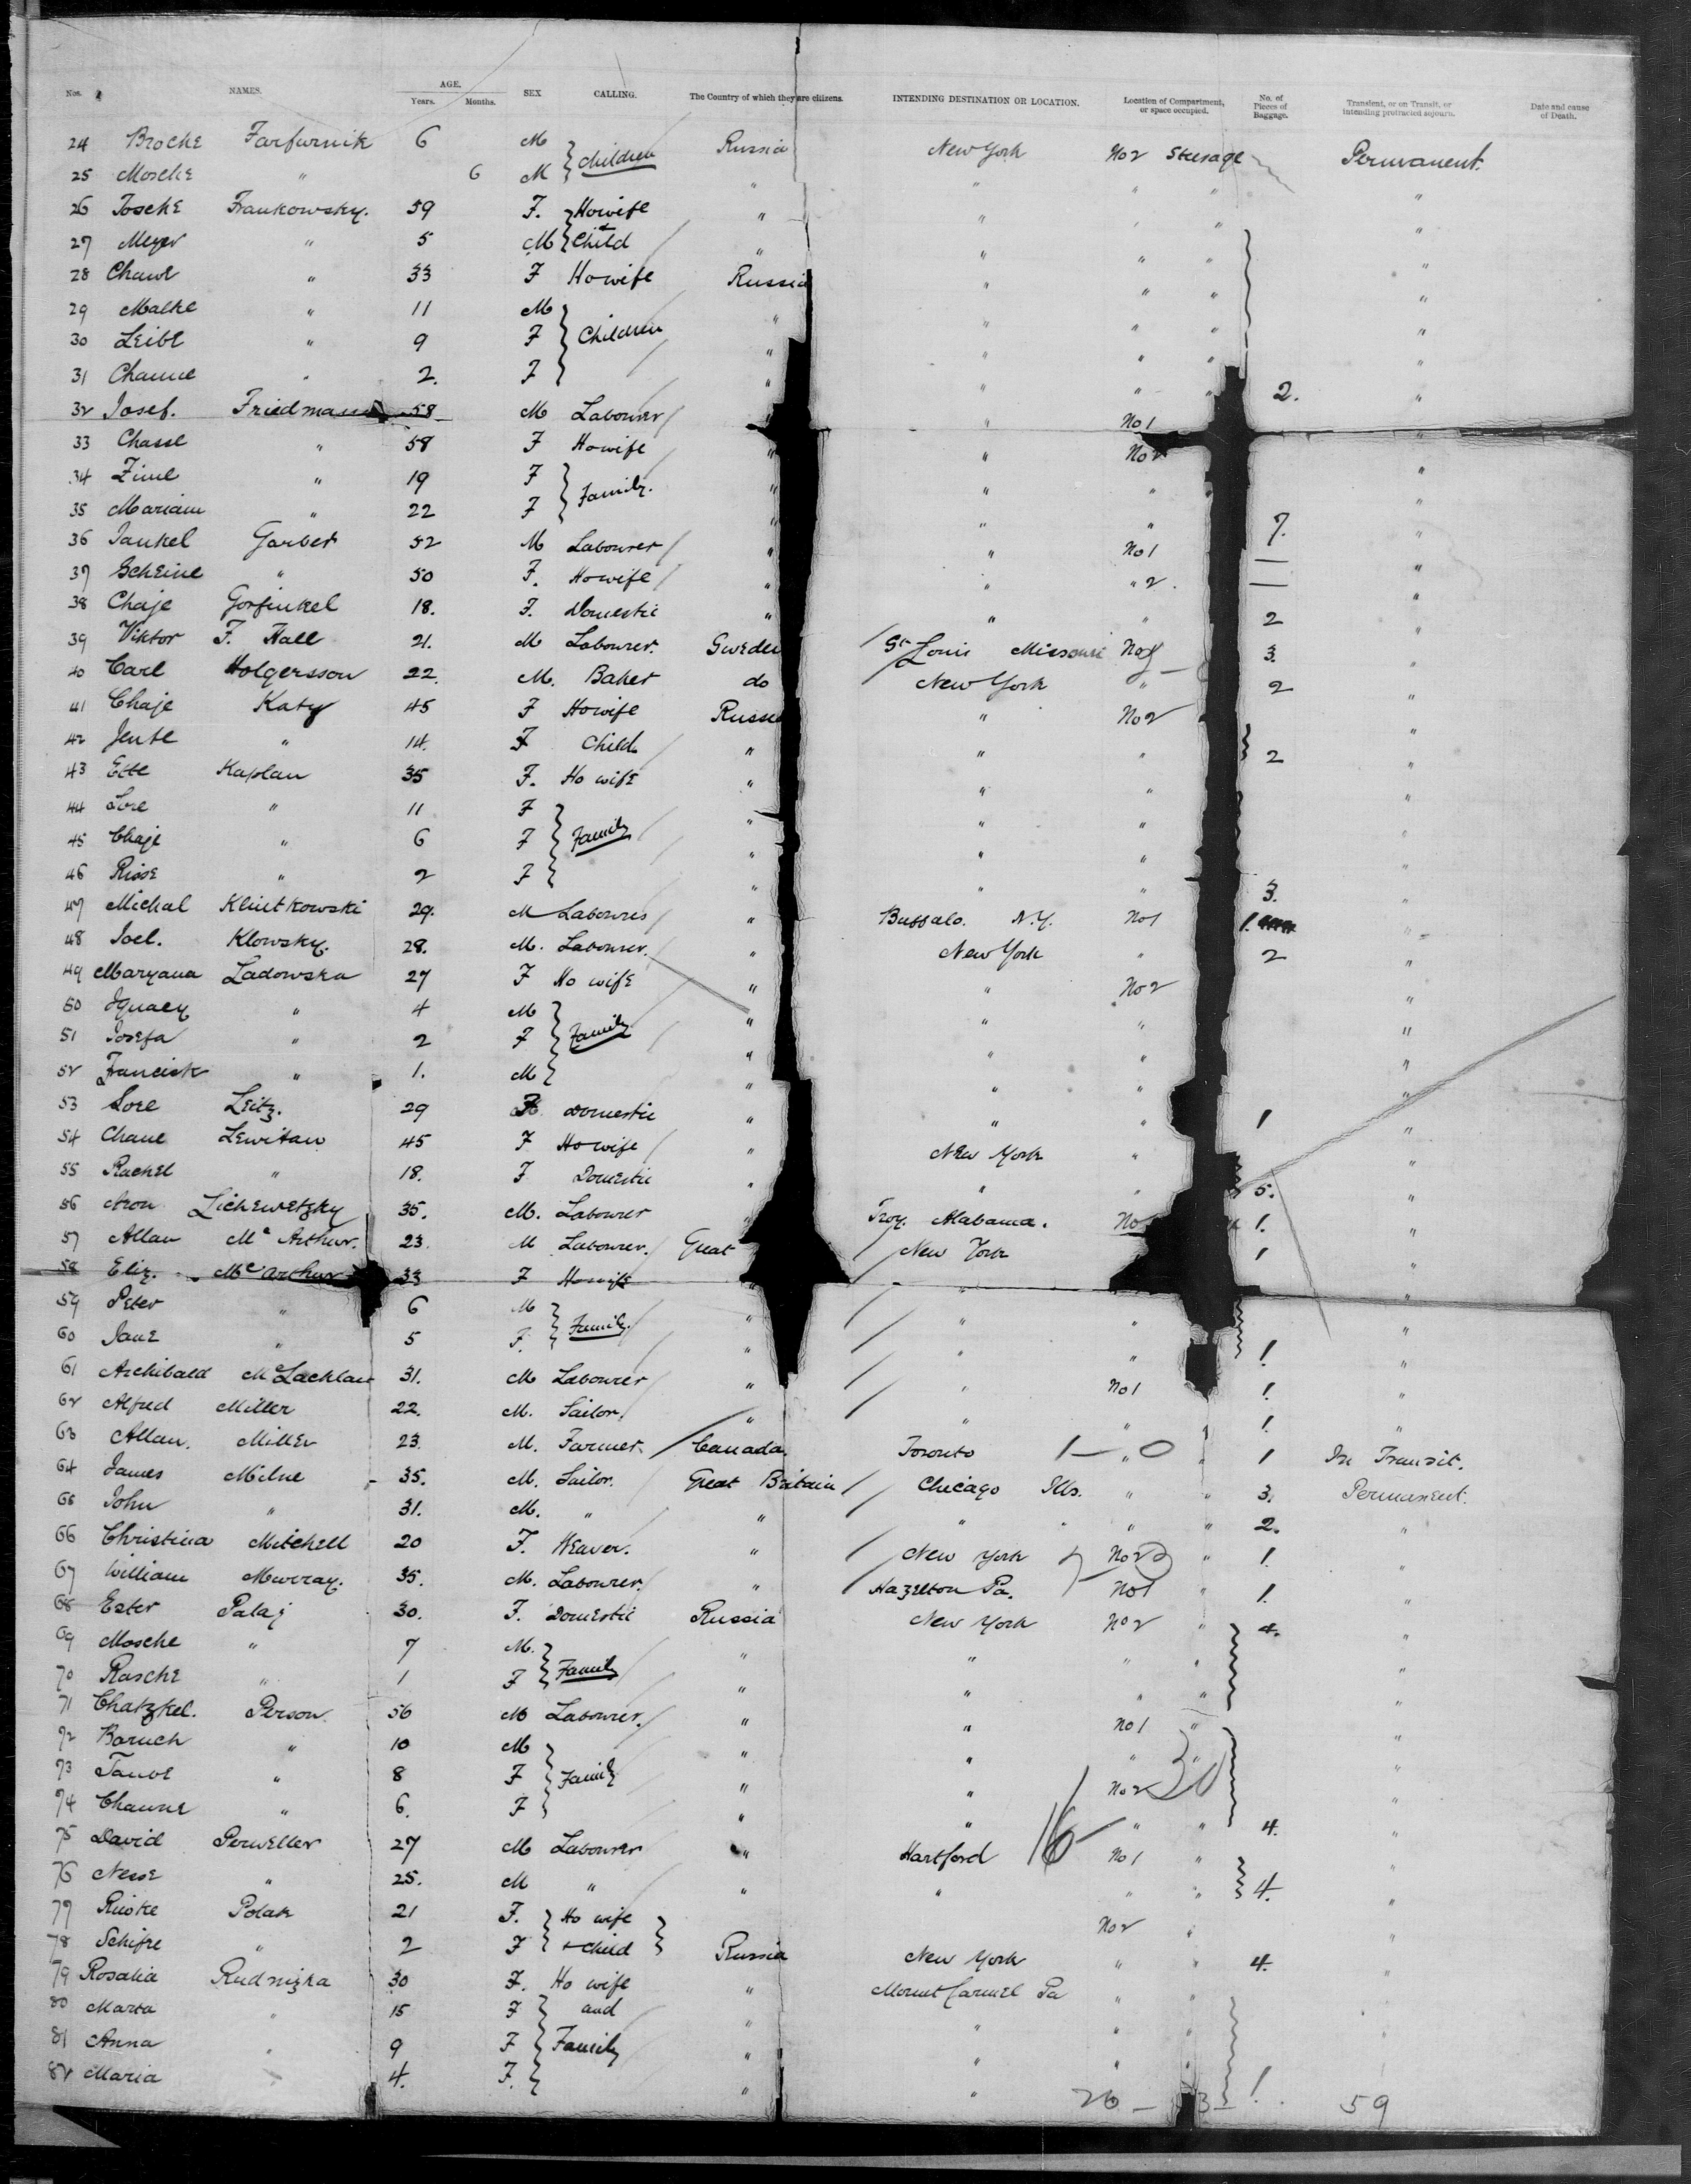 Nos. NAMES. AGE. Years. Months. SEX CALLING. The Country of which they are citizens. INTENDING DESTINATION OR LOCATION. Location of Compartment, or space occupied. No. of Pieces of Baggage. Transient, or on Transit, or intending protracted sojourn. Date and cause of Death.
24 Broche Farfurnik 6 M } Children Russia New York No 2 Steerage Permanent.
25 Mosche " 6 M } " " " " "
26 Josche Frankowsky. 59 F. } Howife " " " " "
27 Meyer " 5 M } & Child " " " " "
28 Chawe " 33 F Howife Russia " " " "
29 Malke " 11 M } " " " " "
30 Leibe " 9 F } Children " " " " "
31 Channe " 2. F } " " " " 2. "
32 Josef. Friedmann 58 M Labourer " " No 1 "
33 Chasse " 58 F Howife " " No 2 "
34 Zime " 19 F } Family. " " " "
35 Mariam " 22 F } " " " 7. "
36 Jankel Garber 52 M Labourer " " No 1 — "
37 Scheine " 50 F. Howife " " " 2. — "
38 Chaje Gorfinkel 18. F. Domestic " " " 2 "
39 Viktor F. Hall 21. M Labourer. Sweden St Louis Missouri No 1 3. "
40 Carl Holgersson 22. M. Baker do New York " 2 "
41 Chaje Katz 45 F Howife Russia " No 2 "
42 Jente " 14. F Child " " " 2 "
43 Ette Kaplan 35 F. Ho wife " " " "
44 Sore " 11 F } " " " "
45 Chaje " 6 F } Family " " " "
46 Risse " 2 F } " " " 3. "
47 Michal Klintkowski 29. M Labourer " Buffalo. N.Y. No 1 1. "
48 Joel. Klowsky. 28. M. Labourer. " New York " 2 "
49 Maryana Ladowska 27 F Ho wife " " No 2 "
50 Ignacy " 4 M } " " " "
51 Josefa " 2 F } Family " " " "
52 Francisk " 1. M } " " " "
53 Sore Leitz. 29 F Domestic " " " 1 "
54 Chane Lewitan 45 F Howife " New York " "
55 Rachel " 18. F Domestic " " " 5. "
56 Aron Lichewetzky 35. M. Labourer Troy. Alabama. No 1. "
57 Allan Mc Arthur. 23. M Labourer. Great New York 1 "
58 Eliz. Mc Arthur 33 F Howife " " "
59 Peter " 6 M } Family. " " " "
60 Jane " 5 F. } " " " 1. "
61 Archibald Mc Lachlan 31. M Labourer " " No 1 1. "
62 Alfred Miller 22. M. Sailor. " " " 1. "
63 Allan. Miller 23. M. Farmer. Canada. Toronto 1 — 0 " " 1 In Transit.
64 James Milne 35. M. Sailor. Great Britain Chicago Ills. " " 3. Permanent.
65 John " 31. M. " " " " " " 2. "
66 Christina Mitchell 20 F. Weaver. " New York No 2 " 1. "
67 William Murray. 35. M. Labourer. " Hazelton Pa. No 1 " 1. "
68 Ester Palaj 30. F. Domestic Russia New York No 2 " 4. "
69 Mosche " 7 M. } Family " " " " "
70 Rasche " 1 F } " " " " "
71 Chatzkel. Person 56 M Labourer. " " No 1 " "
72 Baruch " 10 M } " " " " "
73 Taube " 8 F } Family " " No 2 "
74 Chawne " 6. F } " " " " 4. "
75 David Perweller 27 M Labourer " Hartford 16 No 1 " "
76 Nesse " 25. M " " " " " 4. "
77 Riwke Polak 21 F. } Ho wife } No 2 " "
78 Schifre " 2 F } & Child } Russia New York " " 4. "
79 Rosalia Rudnizka 30 F. Ho wife " Mount Carmel Pa " " "
80 Marta " 15 F } and " " " " "
81 Anna " 9 F } Family " " " " "
82 Maria " 4. F. } " " 1.
26 — 3 — 59